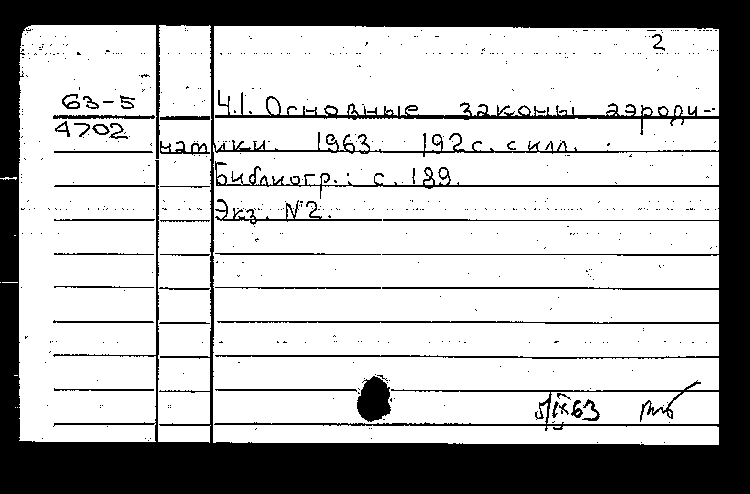 2
63-5
4702
Ч.1. Основные законы аэроди-
намики. 1963. 192с. с илл.
Библиогр.: с. 189.
Экз. №2.
5/IX 63